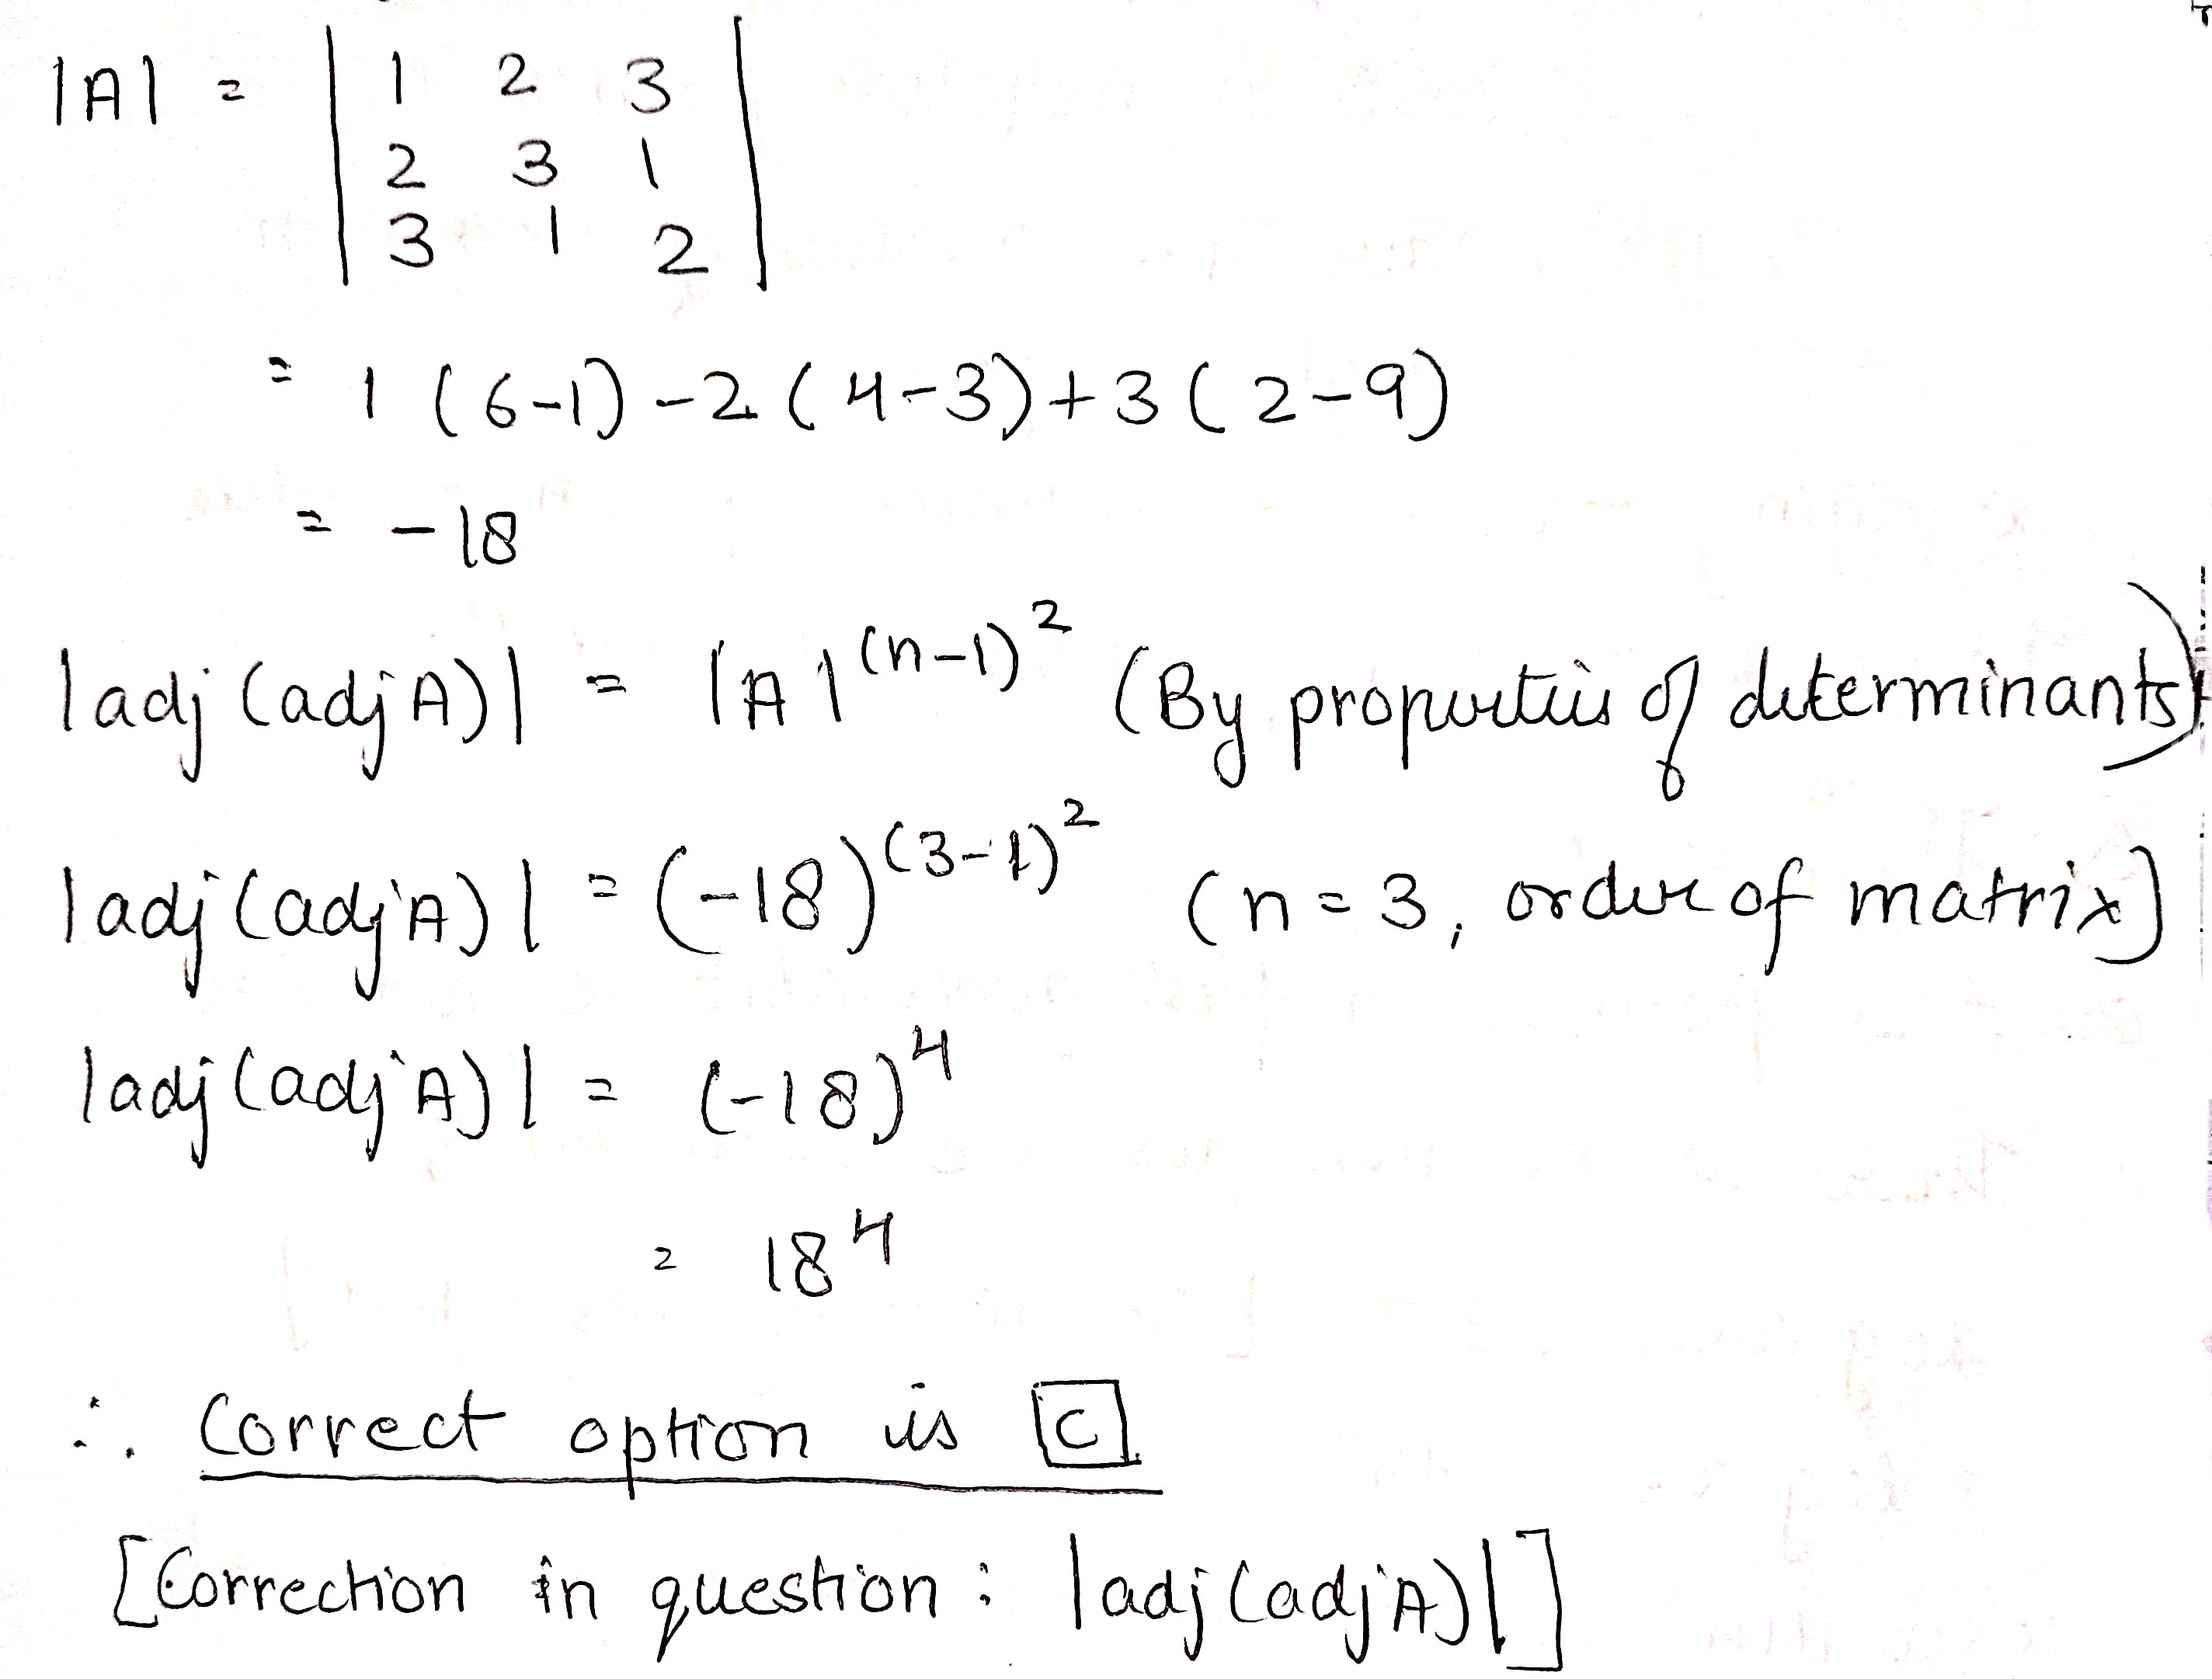 |A| = | 1 2 3 |
| 2 3 1 |
| 3 1 2 |
= 1 (6-1) -2 (4-3) +3 (2-9)
= -18
|adj (adj A)| = |A|^(n-1)^2 (By properties of determinants)
|adj (adj A)| = (-18)^(3-1)^2 (n=3, order of matrix)
|adj (adj A)| = (-18)^4
= 18^4
∴ Correct option is C.
[Correction in question : |adj (adj A)|]